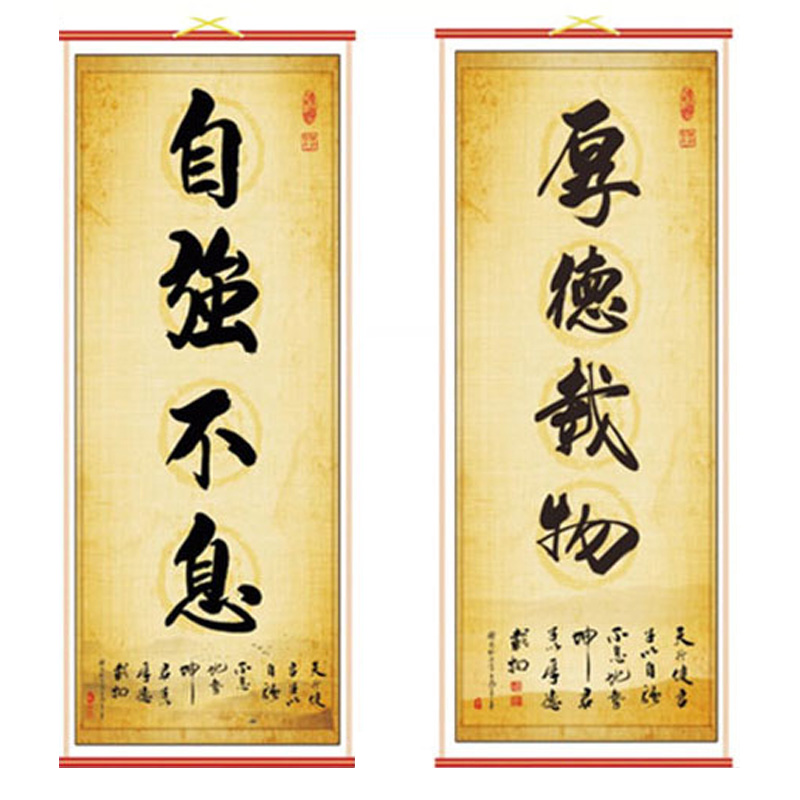 自強不息
天行健
君子以
自強
不息
地勢
坤
君子以
厚德
載物
厚德載物
天行健君
子以自強
不息地勢
坤君
子以厚德
載物